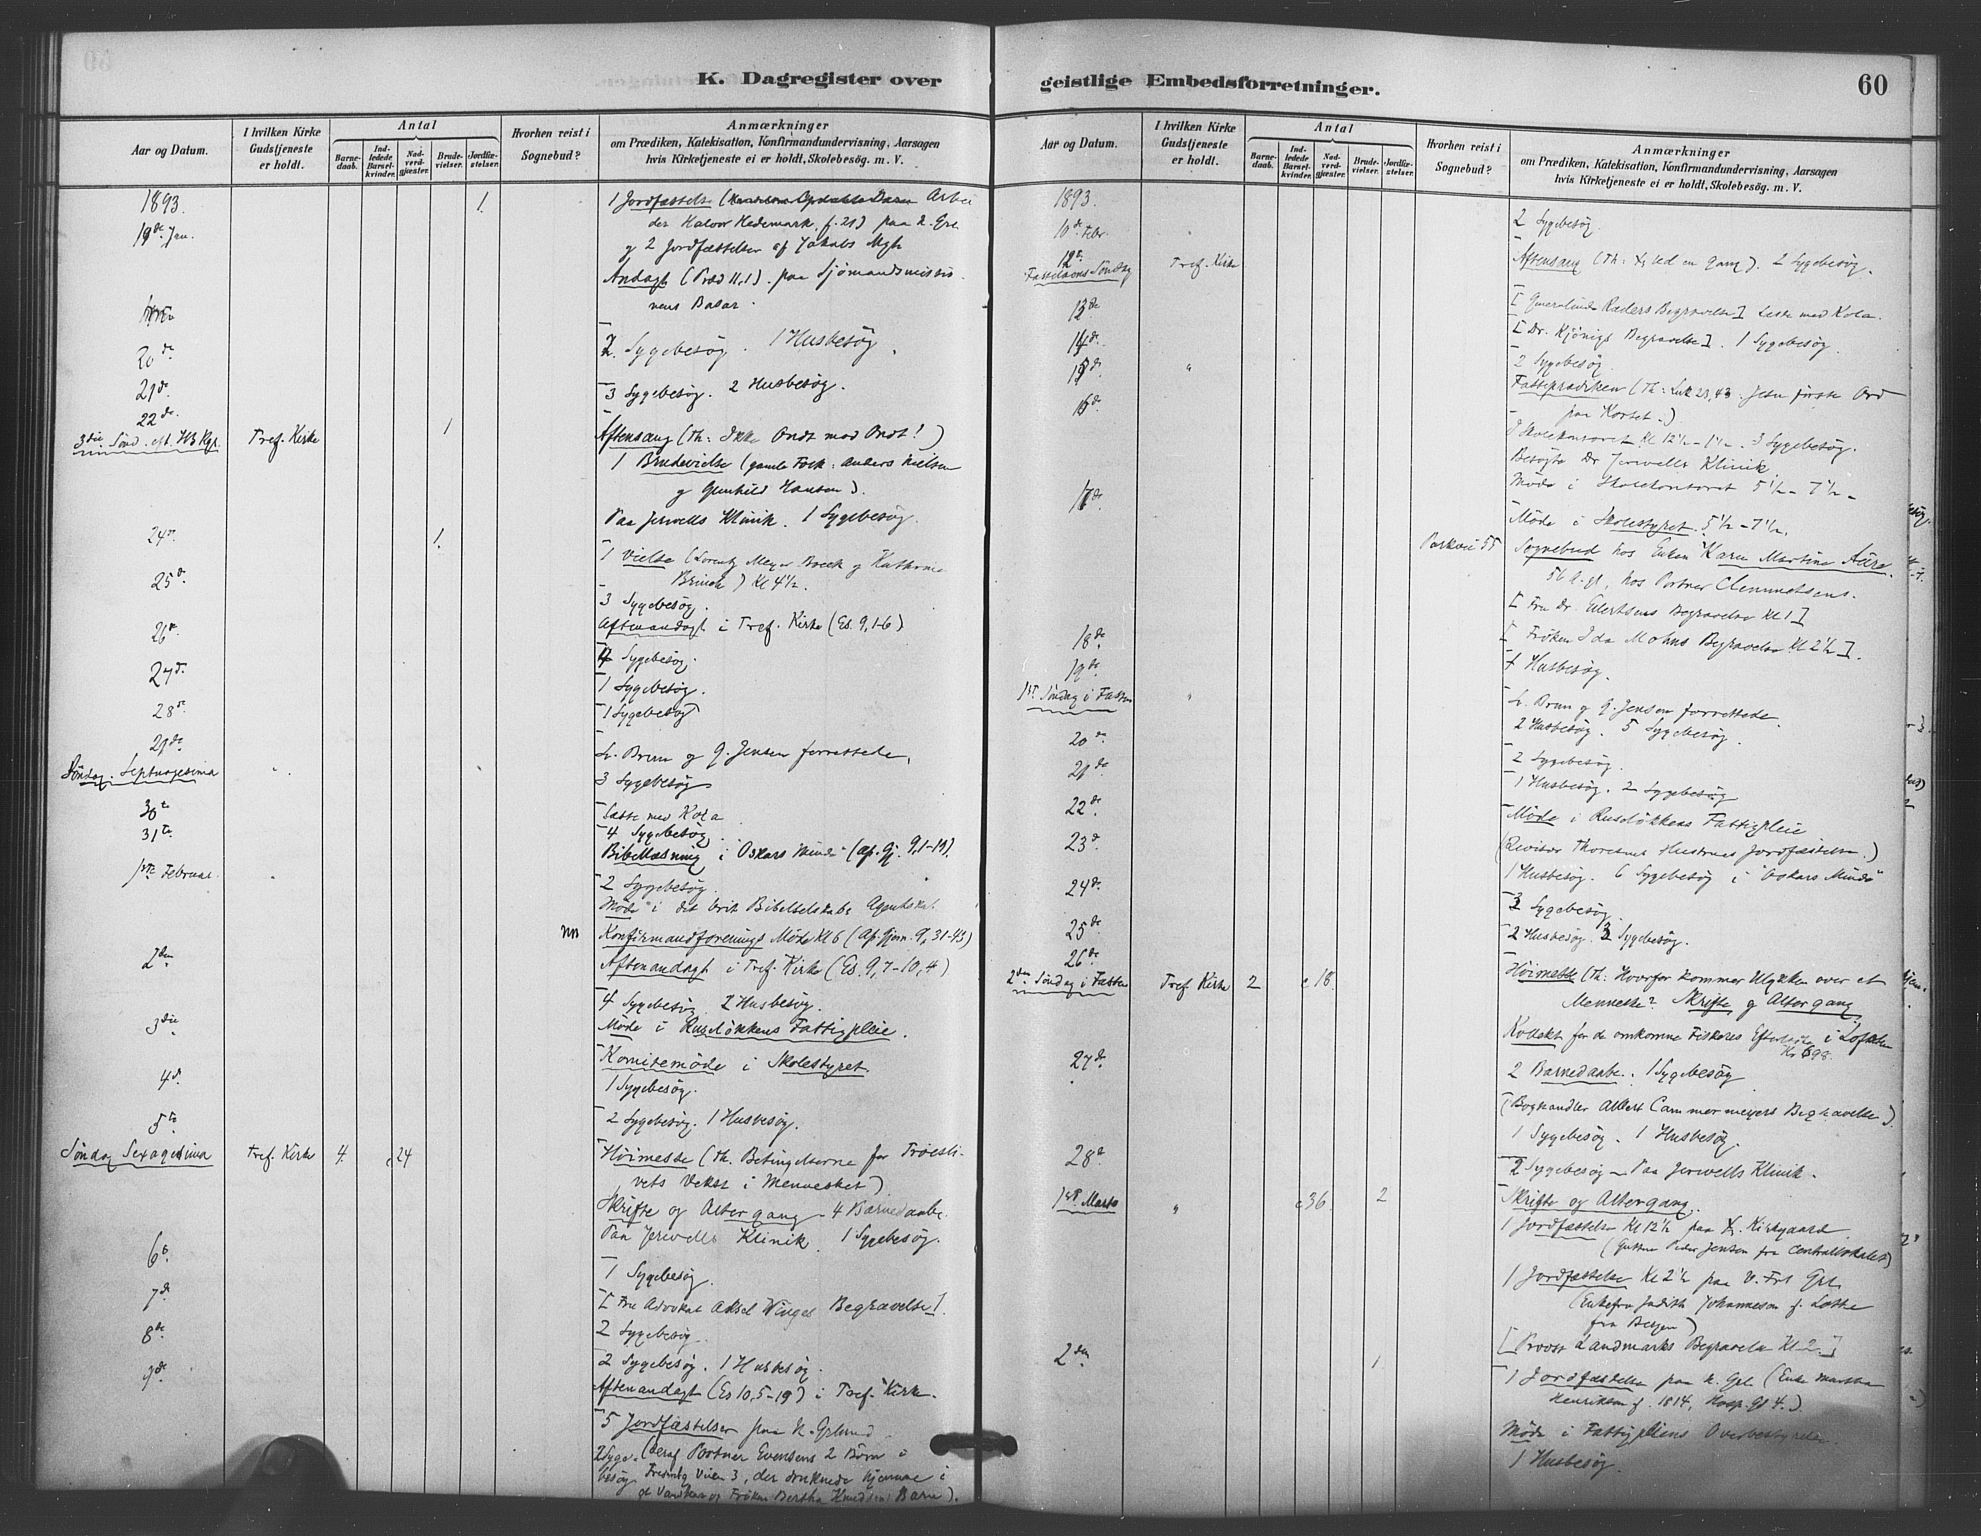 K. Dagregister over
Aar og Datum.
I hvilken Kirke
Gudstjeneste
er holdt.
Antal
Barne-
daab.
Ind-
ledede
Barsel-
kvinder.
Nad-
verd-
gjæster.
Brude-
vielser.
Jordfæ-
stelser.
Hvorhen reist i
Sognebud?
Anmærkninger
om Prædiken, Katekisation, Konfirmandundervisning, Aarsagen
hvis Kirketjeneste ei er holdt, Skolebesög. m. V.
1893. 1. 1 Jordfæstelse Arbei
19de Jan. der Halvor Hedemark, f. 21) paa
og 2 Jordfæstelser af Jakobs Mgh
Andagt (Præd 11,1) paa Sjømandsmissio
nens Basar.
20de 2 Sygebesøg. 1 Husbesøg.
21de 3 Sygebesøg. 2 Husbesøg.
22de
3die Sønd. eft. Tref. Kirke 1 Aftensang (Th: Ikke Ondt mod Ondt!)
1 Brudevielse (gamle Folk: Anders Nielsen
og Gunhild Hansen).
Paa Jervells Klinik. 1 Sygebesøg.
24de 1. 1 Vielse (Lorentz Meyer Boeck og Kathrine
Brinch) Kl 4½.
25de 3 Sygebesøg.
Aftenandagt i Tref. Kirke (Es. 9,1-6)
26de Sygebesøg.
27de 1 Sygebesøg.
28de 1 Sygebesøg
29de
Søndag Septuagesima L. Brun og G. Jensen forrettede.
3 Sygebesøg
30te Læste med Kola
31te 4 Sygebesøg.
Bibellæsning i "Oskars Minde" (Ap. Gj. 9,1-19).
1ste Februar. 2 Sygebesøg.
Møde i det brit Bibelselskabs Agentskab.
Konfirmandforenings Møde Kl 6 (Ap. Gjern. 9, 31-43)
2den Aftenandagt i Tref. Kirke (Es. 9,7-10,4)
4 Sygebesøg 2 Husbesøg.
3die Møde i Ruseløkkens Fattigpleie.
Komitemøde i Skolestyret
4de 1 Sygebesøg.
5te 2 Sygebesøg. 1 Husbesøg.
Søndag Sexagesima Tref. Kirke 4. 24 Høimesse (Th. Betingelserne for Troesli-
vets Vekst i Mennesket)
Skrifte og Altergang 4 Barnedaabe.
Paa Jervells Klinik. 1 Sygebesøg.
6te 1 Sygebesøg.
7de [Fru Advokat Aksel Winges Begravelse].
8de 2 Sygebesøg.
2 Sygebesøg. 1 Husbesøg.
9de Aftenandagt (Es 10,5-19) i Tref. Kirke.
5 Jordfæstelser paa
2 Syge- (deraf Portner Evensens 2 Børn i
besøg Veien 3, der druknede hjemme i
og Frøken Bertha Knudsens Barn).
geistlige Embedsforretninger.
60
Aar og Datum.
I hvilken Kirke
Gudstjeneste
er holdt.
Antal
Barne-
daab.
Ind-
ledede
Barsel-
kvinder.
Nad-
verd-
gjæster.
Brude-
vielser.
Jordfæ-
stelser.
Hvorhen reist i
Sognebud?
Anmærkninger
om Prædiken, Katekisation, Konfirmandundervisning, Aarsagen
hvis Kirketjeneste ei er holdt, Skolebesög. m. V.
1893.
10de Febr. 2 Sygebesøg.
12te
Fastelavns Søndag Tref. Kirke Aftensang 2 Sygebesøg.
13de [Begravelse] Læste med Kola.
14de [Dr. Kjønigs Begravelse]. 1 Sygebesøg.
15de 2 Sygebesøg
Fasteprædiken (Th: Luk 23,43. Jesu første Ord
16de paa Korset.)
Skolekontoret Kl 12½-1½. 3 Sygebesøg.
Besøgte Dr Jervells Klinik.
Møde i Skolekontoret 5½-7½
17de Møde i Skolestyret. 5½-7½.
Parkvei 55 Sognebud hos Enken Karen Martine
56 A. gl, hos Portner Clemmetsens.
[Fru Dr. Eilertsens Begravelse Kl 1]
18de [Frøken Ida Mohns Begravelse Kl 2½].
19de Husbesøg.
1ste Søndag i Fasten L. Brun og G. Jensen forrettede.
20de 2 Husbesøg. 5 Sygebesøg.
21de 2 Sygebesøg.
1 Husbesøg. 2 Sygebesøg
22de Møde i Ruseløkkens Fattigpleie
23de (Revisor Thoresens Hustrues Jordfæstelse.)
1 Husbesøg. 6 Sygebesøg i "Oskars Minde"
24de 3 Sygebesøg.
25de 2 Husbesøg. 3 Sygebesøg.
26de
2den Søndag i Fasten Tref Kirke 2 18 Høimesse (Th: Hvorfor kommer Ulykken over et
Menneske? Skrifte og Altergang.
Kollekt for de omkomne Fiskeres Efterladte i Lofoten
Kr 698.
27de 2 Barnedaabe. 1 Sygebesøg
(Boghandler Albert Cammermeyers Begravelse).
1 Sygebesøg. 1 Husbesøg.
28de 2 Sygebesøg Paa Jervells Klinik.
1ste Marts 36 2 Skrifte og Altergang.
1 Jordfæstelse Kl 12½ paa Kirkegaard
(Peder Jensen fra Centrallokalet)
1 Jordfæstelse Kl 2½ paa V. Frs Grl.
(Enkefru Judith Johannesen f. Lothe
fra Bergen)
2den 1 [Provst Landmarks Begravelse Kl 2.]
1 Jordfæstelse paa (Enke Martha
Henriksen f. 1814, Hosp. Gd 4.).
Møde i Fattigpleiens Overbestyrelse.
1 Husbesøg.